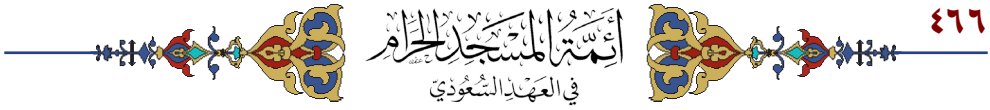 ٤٦٦
أَئِمَّةُ المَسْجِدِ الحَرَامِ
فِي العَهْدِ السُّعُودِيِّ